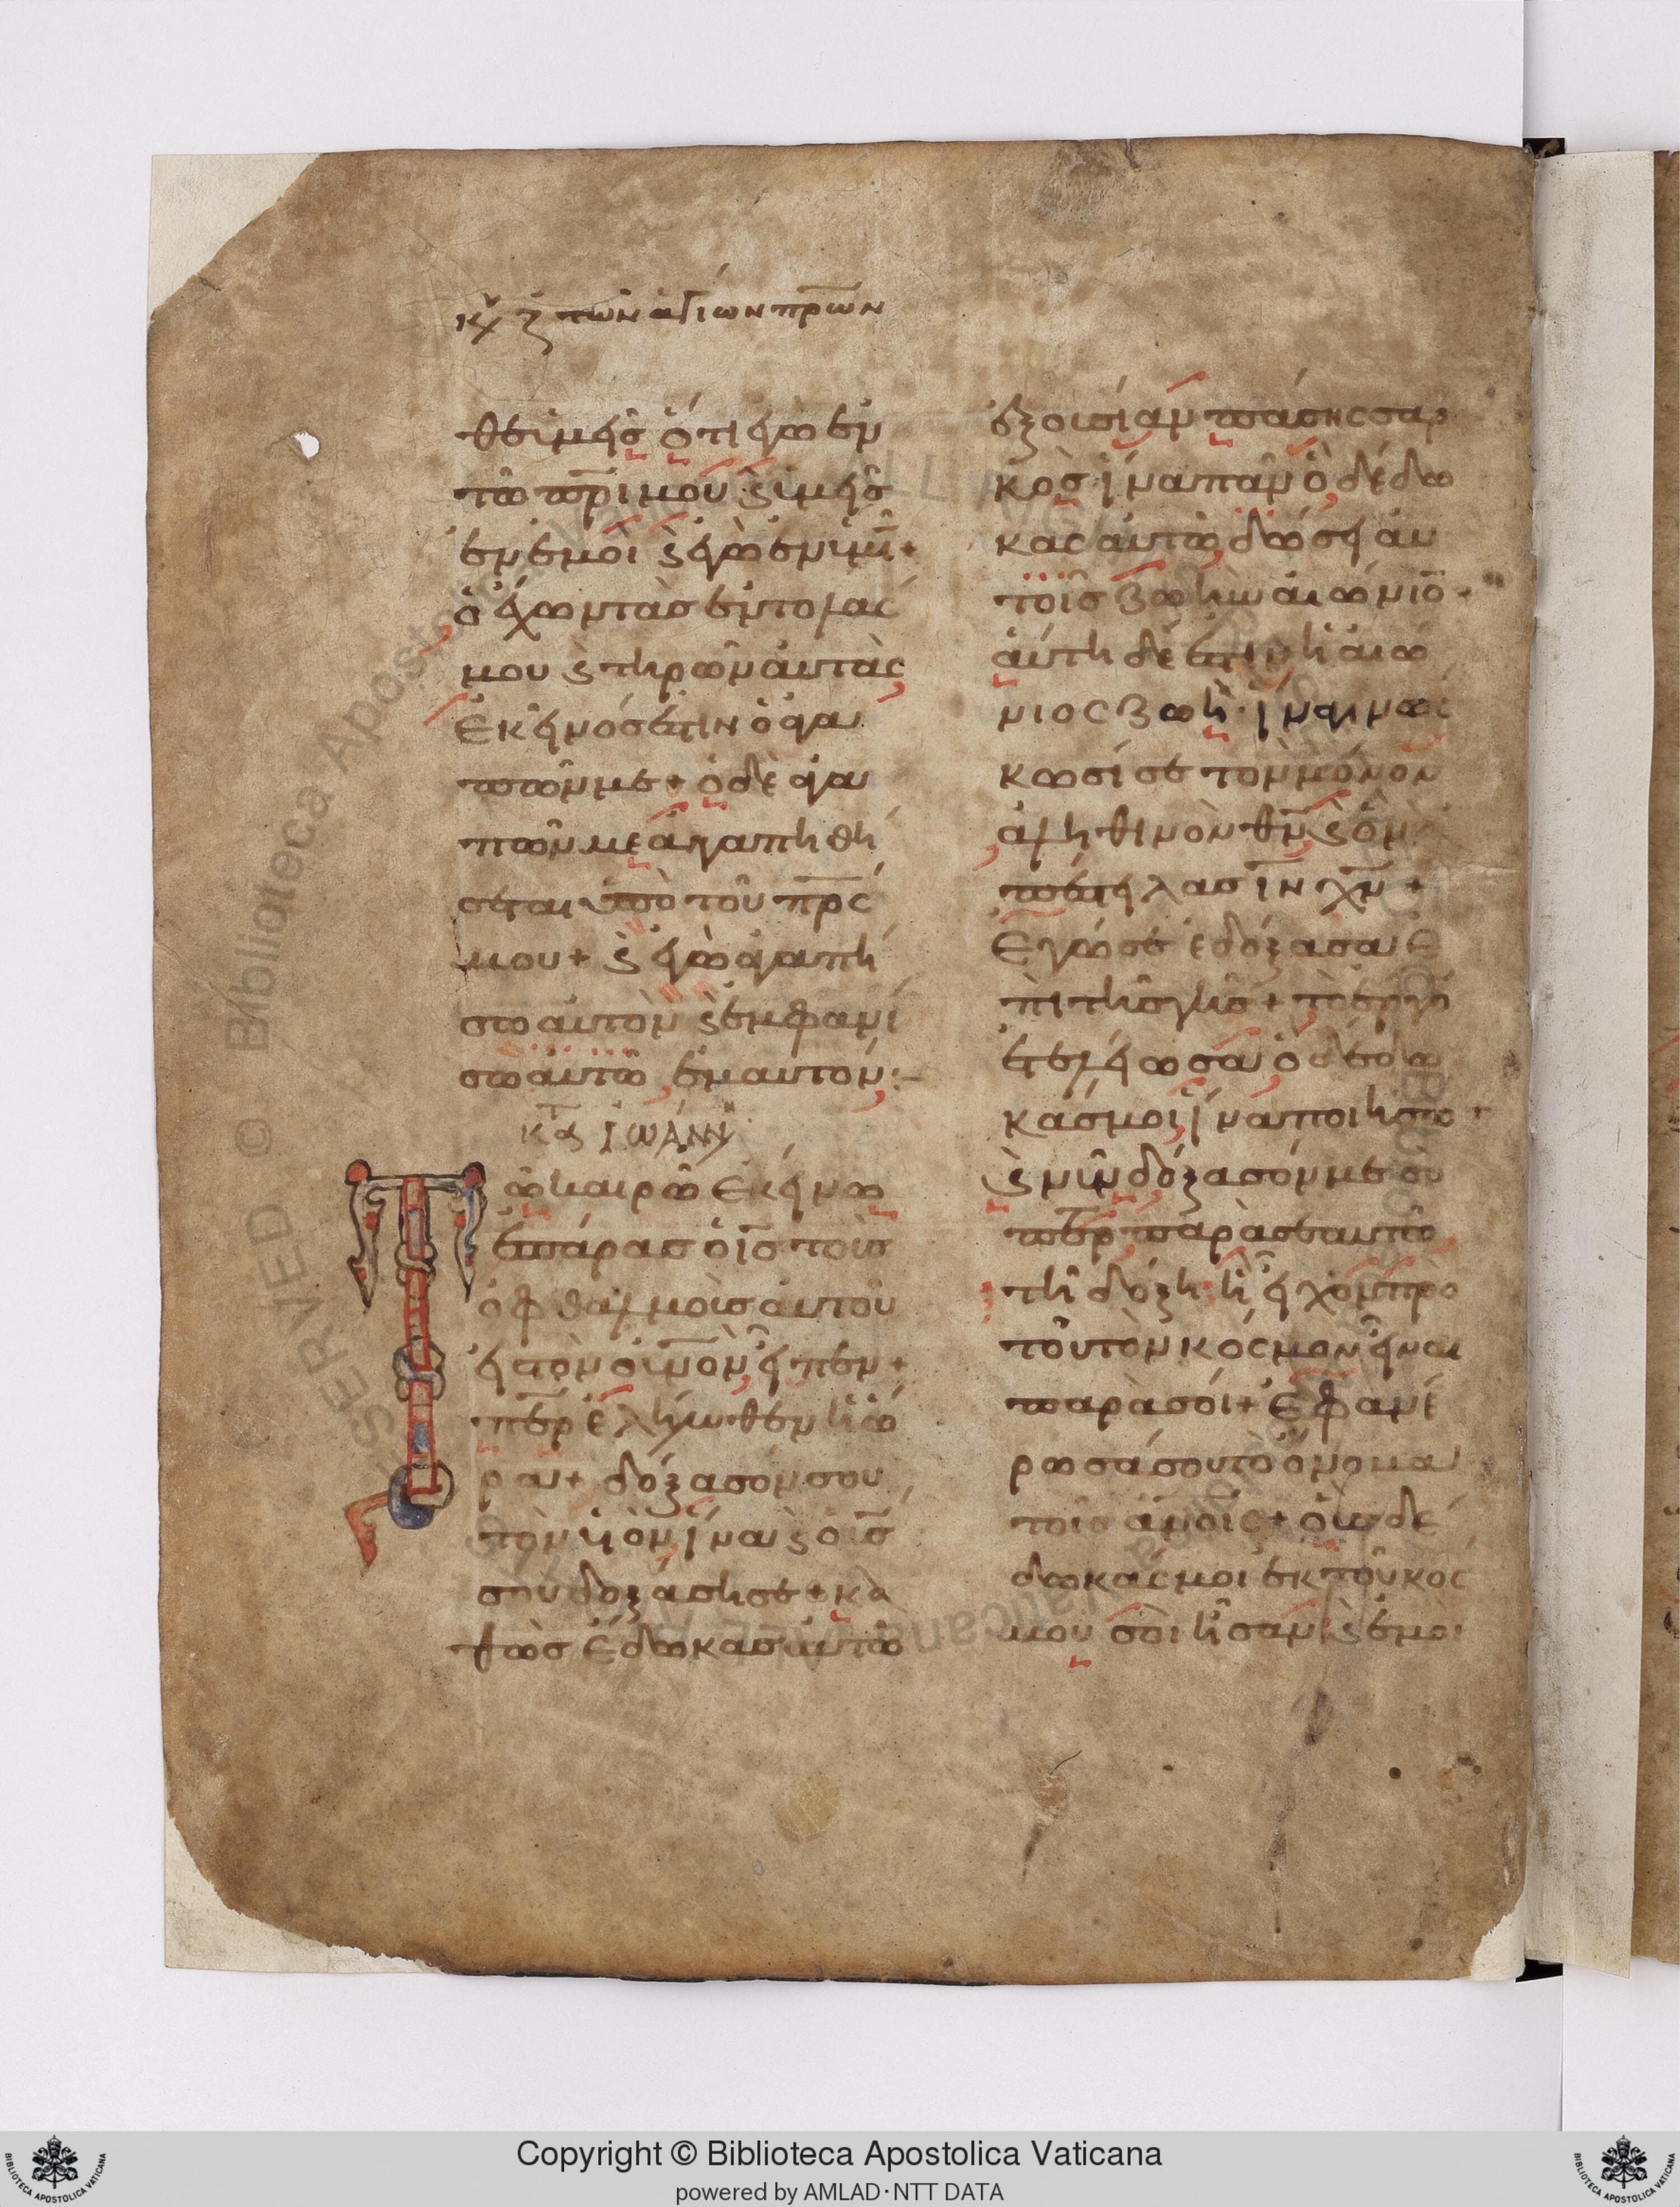 κυ ζ των αγίων πρων
θε ϊμης ὅτι εγω εν
τῶ πρι μου ϛ ϊμης
εν εμοι ϛ εγὼ εν ϊμῖν +
ὁ έχων τὰσ εντολὰς
μου ϛ τηρῶν αυτὰς
Εκεῖνόσ εστιν ὁ αγα
πῶν με + ὁ δὲ αγα
πῶν με ἀγαπηθή
σεται ϋπὸ τοῦ πρς
μου + ϛ εγὼ αγαπή
σο αυτὸν ϛ εμφανί
σω αυτῶ εμαυτόν :-
κτ ϛ ϊωάννη
Τῶ καιρῶ Εκείνω
επάρασ ὁ ισ τοὺσ
οφθαλμοὺσ αυτοῦ
εισ τὸν ουνὸν εῖπεν +
περ ελήλυθεν ἡ ώ
ρα + δόξασον σου
τὸν ϋιὸν ϊνα ϛ ὁ υισ
σου δοξάση σε + κα
θὼσ έδωκασ αυτῶ
εξουσίαν πάσης σαρ
κὸσ ϊνα πᾶν ὁ δέδω
κας αυτῶ δώσει αυ
τοῖσ ζωὴν αιώνιο
αύτη δέ εστιν ἡ αιώ
νιος ζωή · ϊνα γινώ
κωσί σε τον μόνον
αληθινὸν θν ϛ ὃν ὰ
πέστειλασ ιν χν +
Εγώ σε εδόξασα Ε
πὶ τῆσ γῆσ + τὸ έργο
ετελείωσα ὁ δέδω
κάσ μοι ϊνα ποιήσω +
ϛ νῦν δόξασόν με σὺ
περ παρὰ σεαυτῶ
τῆ δόξη ἧ εῖχον πρὸ
τοῦ τὸν κόσμον εῖναι
παρὰ σοί + Εφανέ
ρωσά σου τὸ όνομα
τοισ ανοις + οὑσ δέ
δωκάς μοι εκ τοῦ κόσ
μου σοὶ ῆσαν ϛ εμοι
Copyright © Biblioteca Apostolica Vaticana
powered by AMLAD·NTT DATA